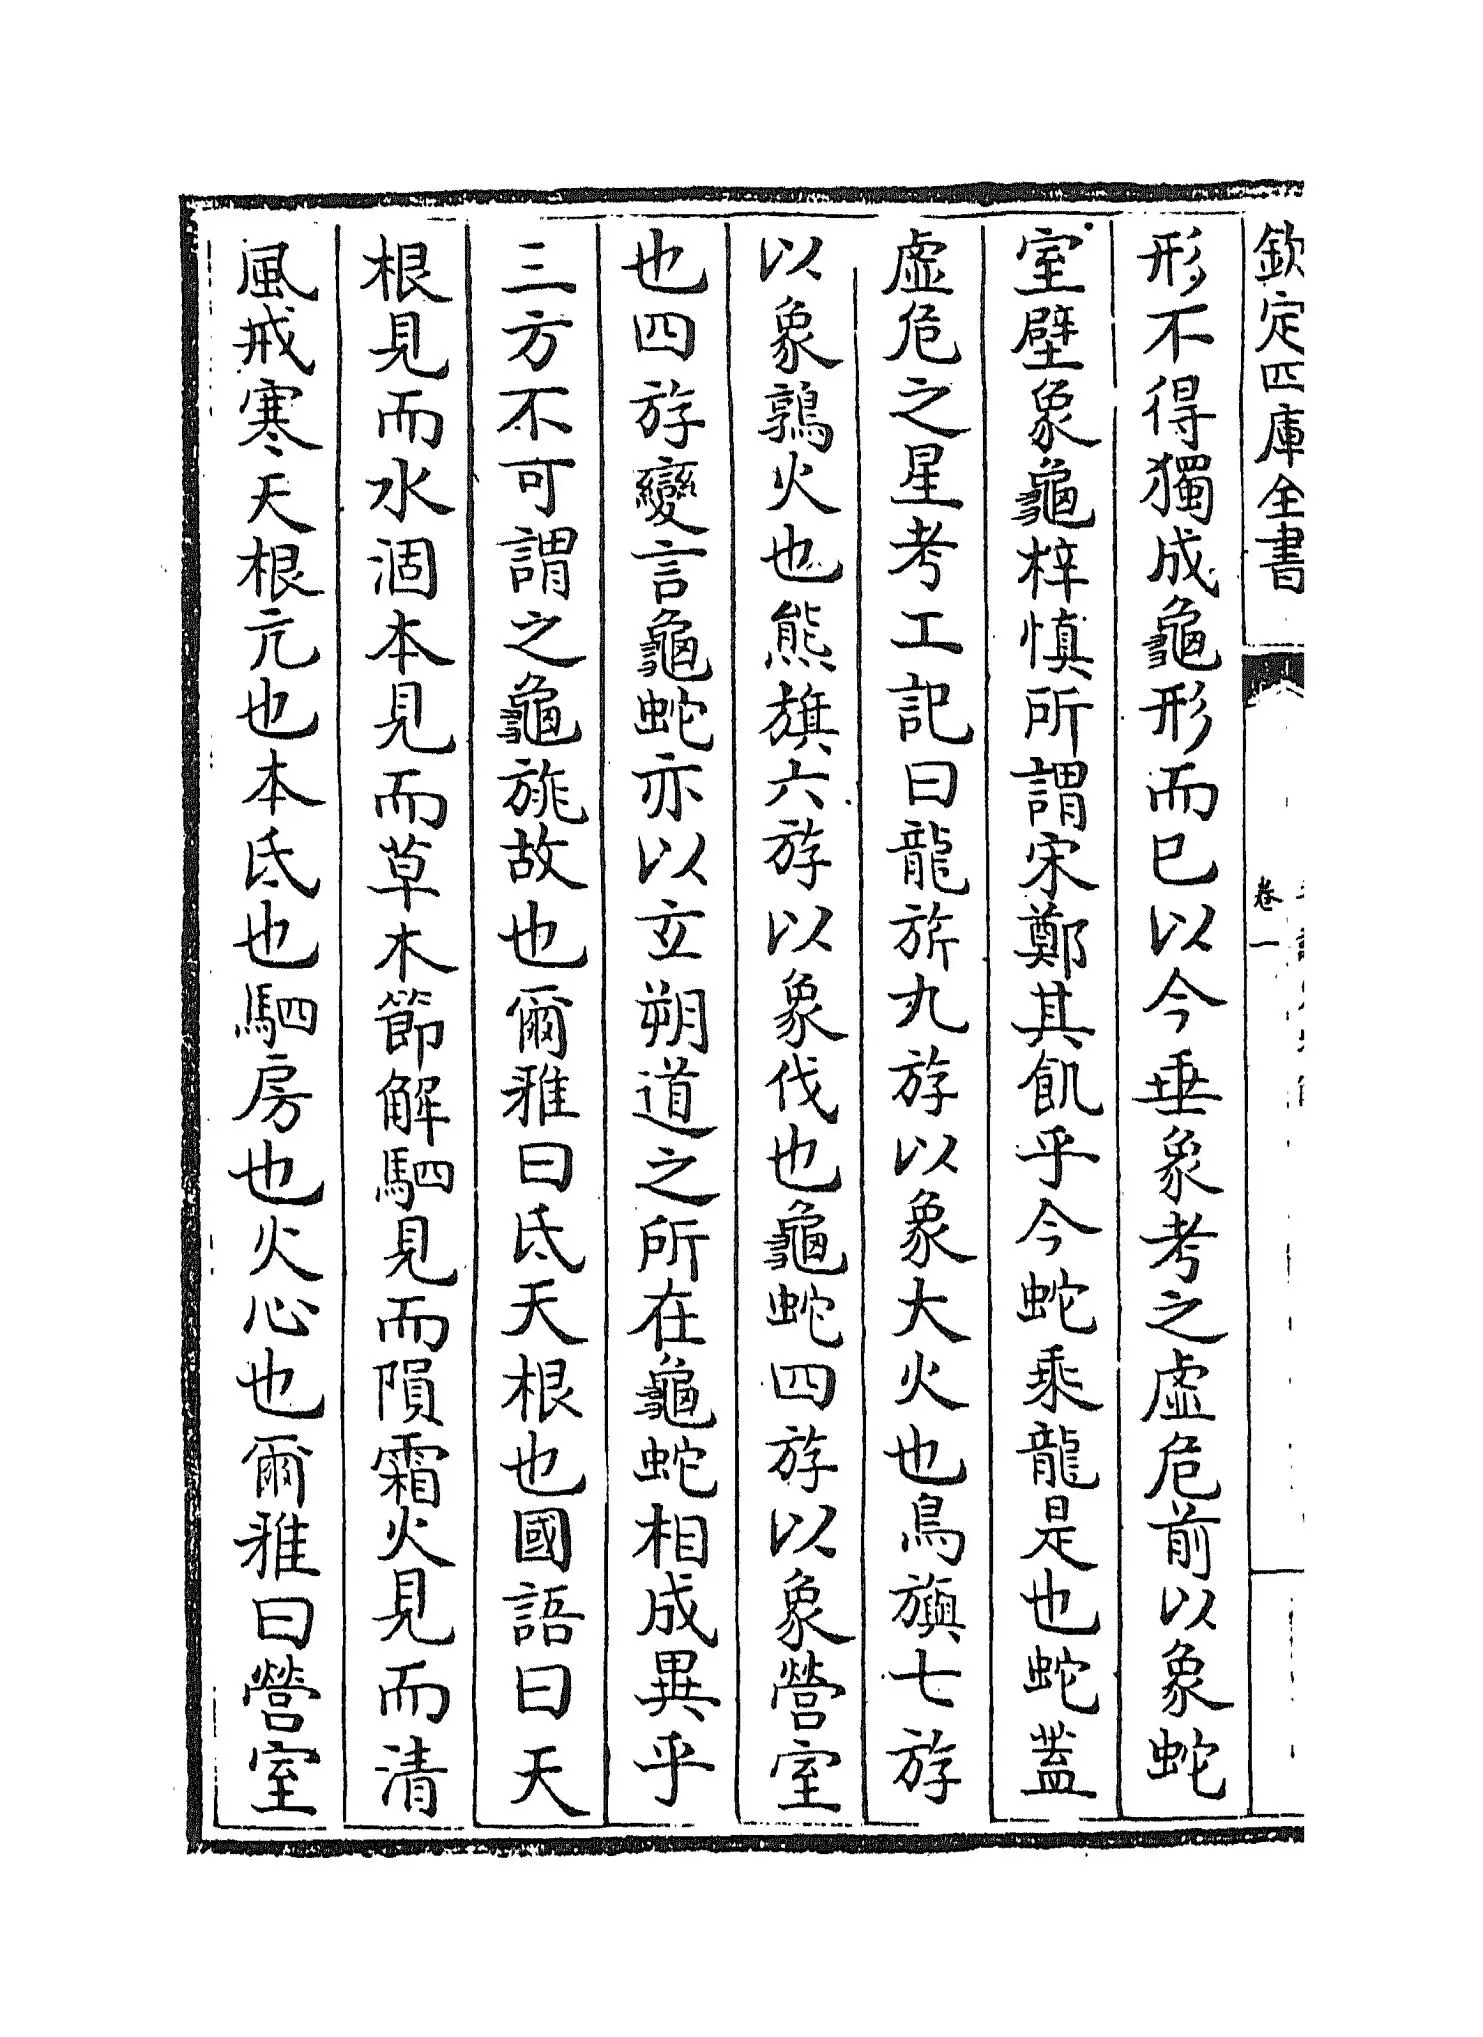 欽定四庫全書
卷一
形不得獨成龜形而已以今垂象考之虛危前以象蛇
室壁象龜梓慎所謂宋鄭其飢乎今蛇乘龍是也蛇蓋
虛危之星考工記曰龍旂九斿以象大火也鳥旟七斿
以象鶉火也熊旗六斿以象伐也龜蛇四斿以象營室
也四斿變言龜蛇亦以立朔道之所在龜蛇相成異乎
三方不可謂之龜旐故也爾雅曰氐天根也國語曰天
根見而水涸本見而草木節解駟見而隕霜火見而清
風戒寒天根亢也本氐也駟房也火心也爾雅曰營室